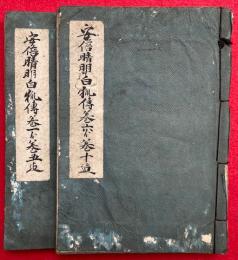 安倍晴明白狐傳 巻六ゟ巻十迄
安倍晴明白狐傳 巻一ゟ巻五迄